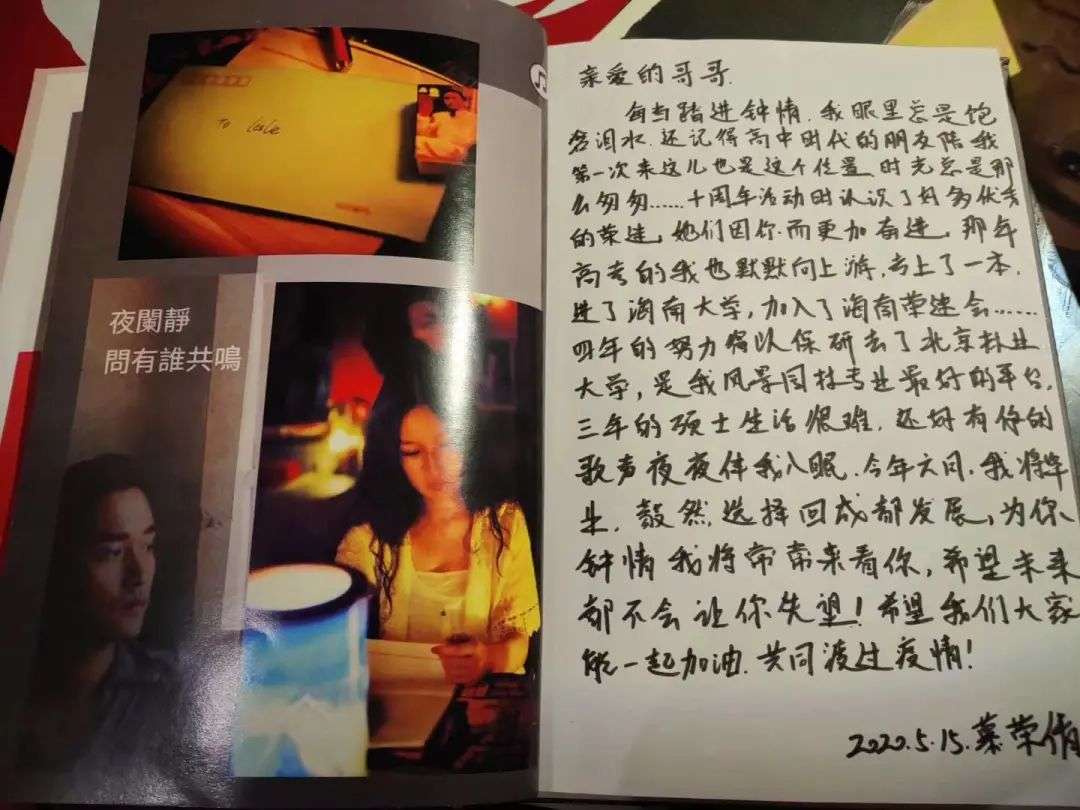 To Leslie
夜闌靜
問有誰共鳴
亲爱的哥哥.
每当踏进钟情,我眼里总是饱
含泪水.还记得高中时代的朋友陪我
第一次来这儿也是这个位置.时光总是那
么匆匆……十周年活动时认识了好多优秀
的荣迷,她们因你而更加奋进,那年
高考的我也默默向上游,考上了一本.
进了海南大学,加入了海南荣迷会……
四年的努力得以保研去了北京林业
大学,是我风景园林专业最好的平台.
三年的硕士生活很难,还好有你的
歌声夜夜伴我入眠.今年六月.我将毕
业.毅然选择回成都发展,为你
钟情我将常常来看你,希望未来
都不会让你失望!希望我们大家
能一起加油.共同渡过疫情!
2020.5.15.